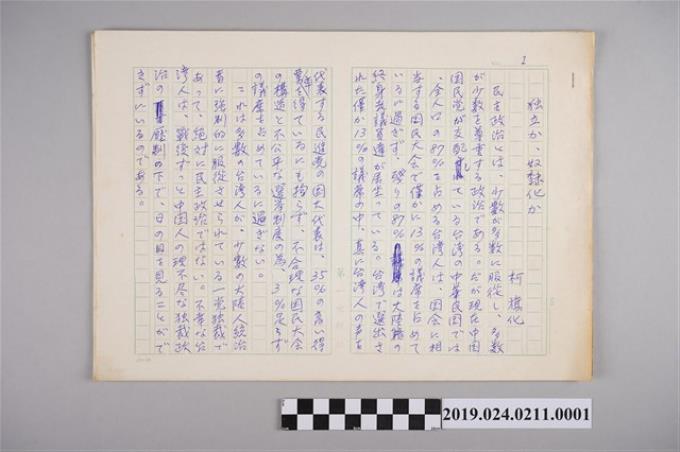 1
独立か、奴隷化か
柯旗化
民主政治とは、少数が多数に服従し、多数
が少数を尊重する政治である。だが現在中国
国民党が支配している台湾の中華民国では
、全人口の87%を占める台湾人は、国会に相
当する国民大会で僅かに13%の議席を占めて
いるに過ぎず、残りの87%は大陸籍の
終身老議員達が居坐っている。台湾で選出さ
れた僅か13%の議席の中、真に台湾人の声を
代表する民進党の国大代表は、35%の高い得
票を得ているにも拘らず、不合理な国民大会
の構造と不公平な選挙制度の為、3%足らず
の議席を占めているに過ぎない。
これは多数の台湾人が、少数の大陸人統治
者に強制的に服従させられている一党独裁で
あって、絶対に民主政治ではない。不幸な台
湾人は、戦後ずっと中国人の理不尽な独裁政
治の圧制の下で、日の目を見ることができ
きずにいるのである。
2019.024.0211.0001